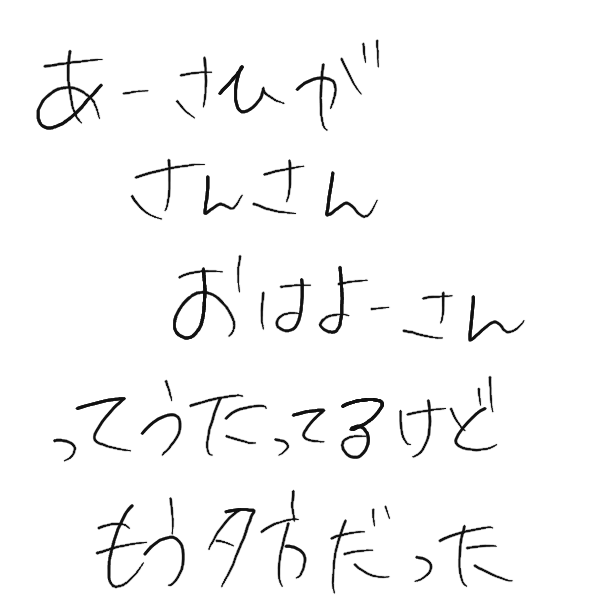 あーさひが
さんさん
おはよーさん
ってうたってるけど
もう夕方だった